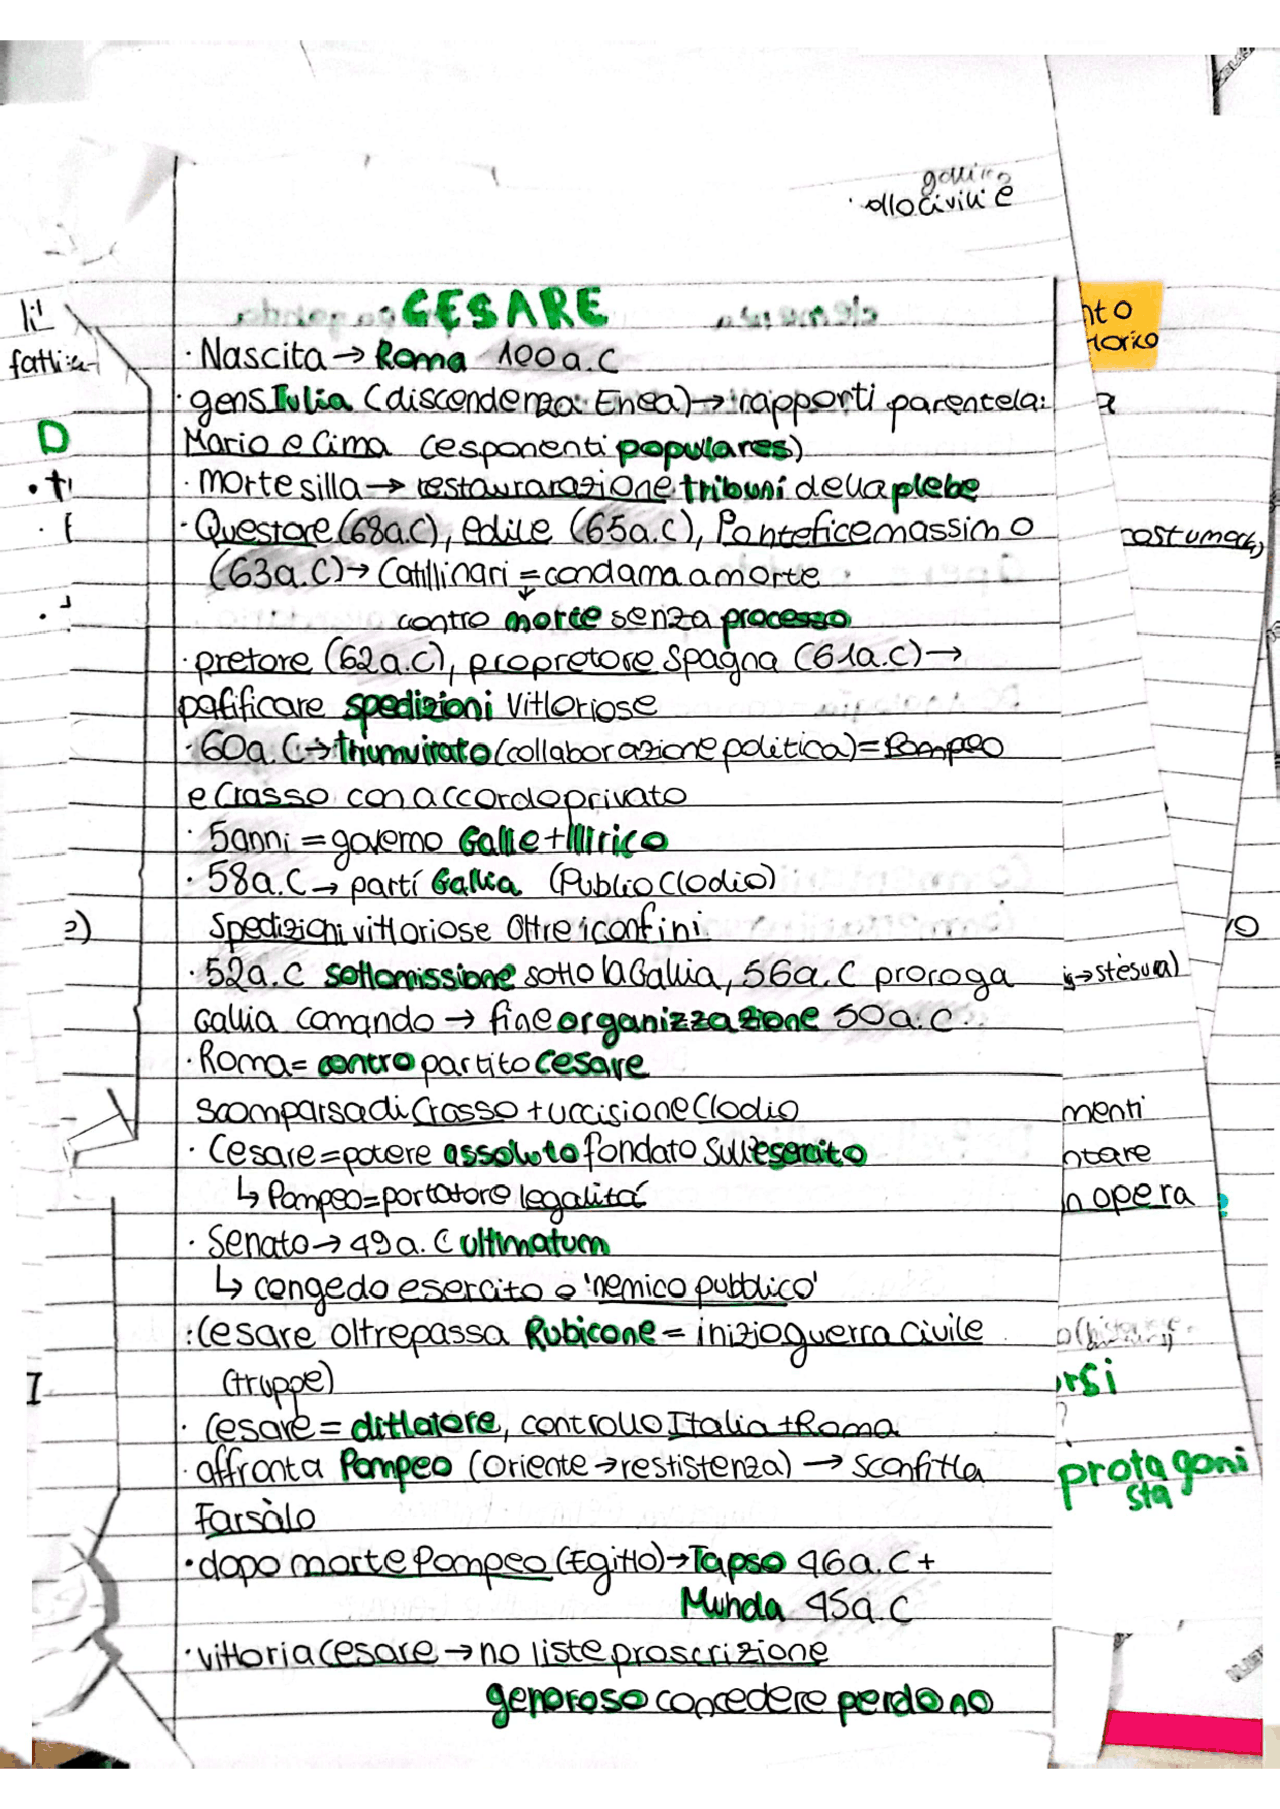 allo civili e
CESARE
· Nascita → Roma 100 a.C
· gens Iulia (discendenza: Enea) → rapporti parentela:
Mario e Cima (esponenti populares)
· morte silla → restaurarazione tribuni della plebe
· Questore (68a.C), edile (65a.C), Pontefice massimo
(63a.C) → Catillinari = condama a morte
contro morte senza processo
· pretore (62a.C), propretore Spagna (61a.C) →
pafificare spedizioni vittoriose
· 60a.C → triumvirato (collaborazione politica) = Pompeo
e Crasso con accordo privato
· 5 anni = governo Gallie + Illirico
· 58a.C → partí Gallia (Publio Clodio)
Spedizioni vittoriose Oltre i confini
· 52a.C sottomissione sotto la Gallia, 56a.C proroga
Gallia comando → fine organizzazione 50a.C.
· Roma = contro partito Cesare
scomparsa di Crasso + uccisione Clodio
· Cesare = potere assoluto fondato sull'esercito
↳ Pompeo = portatore legalitá
· Senato → 49a.C ultimatum
↳ congedo esercito o 'nemico pubblico'
: Cesare oltrepassa Rubicone = inizio guerra civile
(truppe)
· Cesare = dittatore, controllo Italia + Roma
· affronta Pompeo (Oriente → restistenza) → sconfitta
Farsàlo
· dopo morte Pompeo (Egitto) → Tapso 46a.C +
Munda 45a.C
· vittoria Cesare → no liste proscrizione
generoso concedere perdono
nto
torico
costumach,
→ stesura)
menti
ntare
n opera
orsi
protagoni
sta